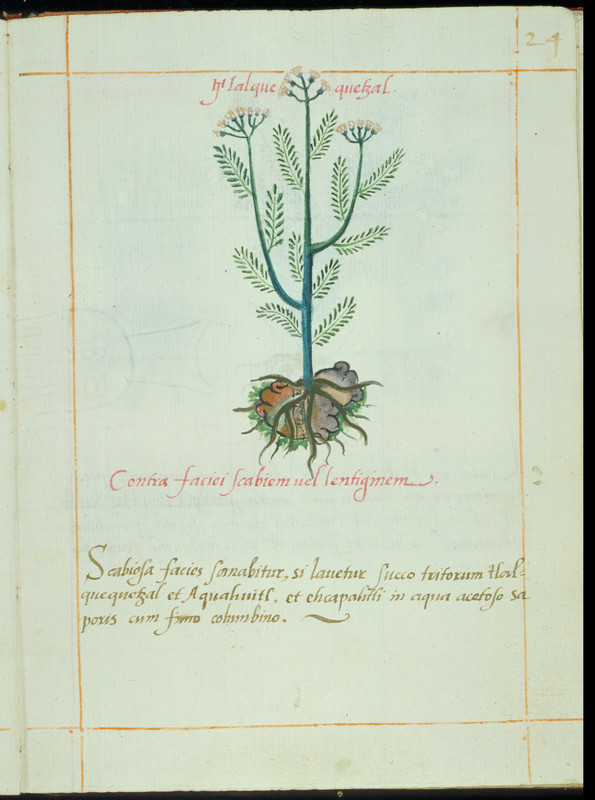 24
Tlalquequetzal.
Contra faciei scabiem uel lentiginem.
Scabiosa facies sanabitur, si lauetur succo tritorum tlal-
quequetzal et Aquahuitl, et ehcapahtli in aqua acetoso sa
poris cum fimo columbino.